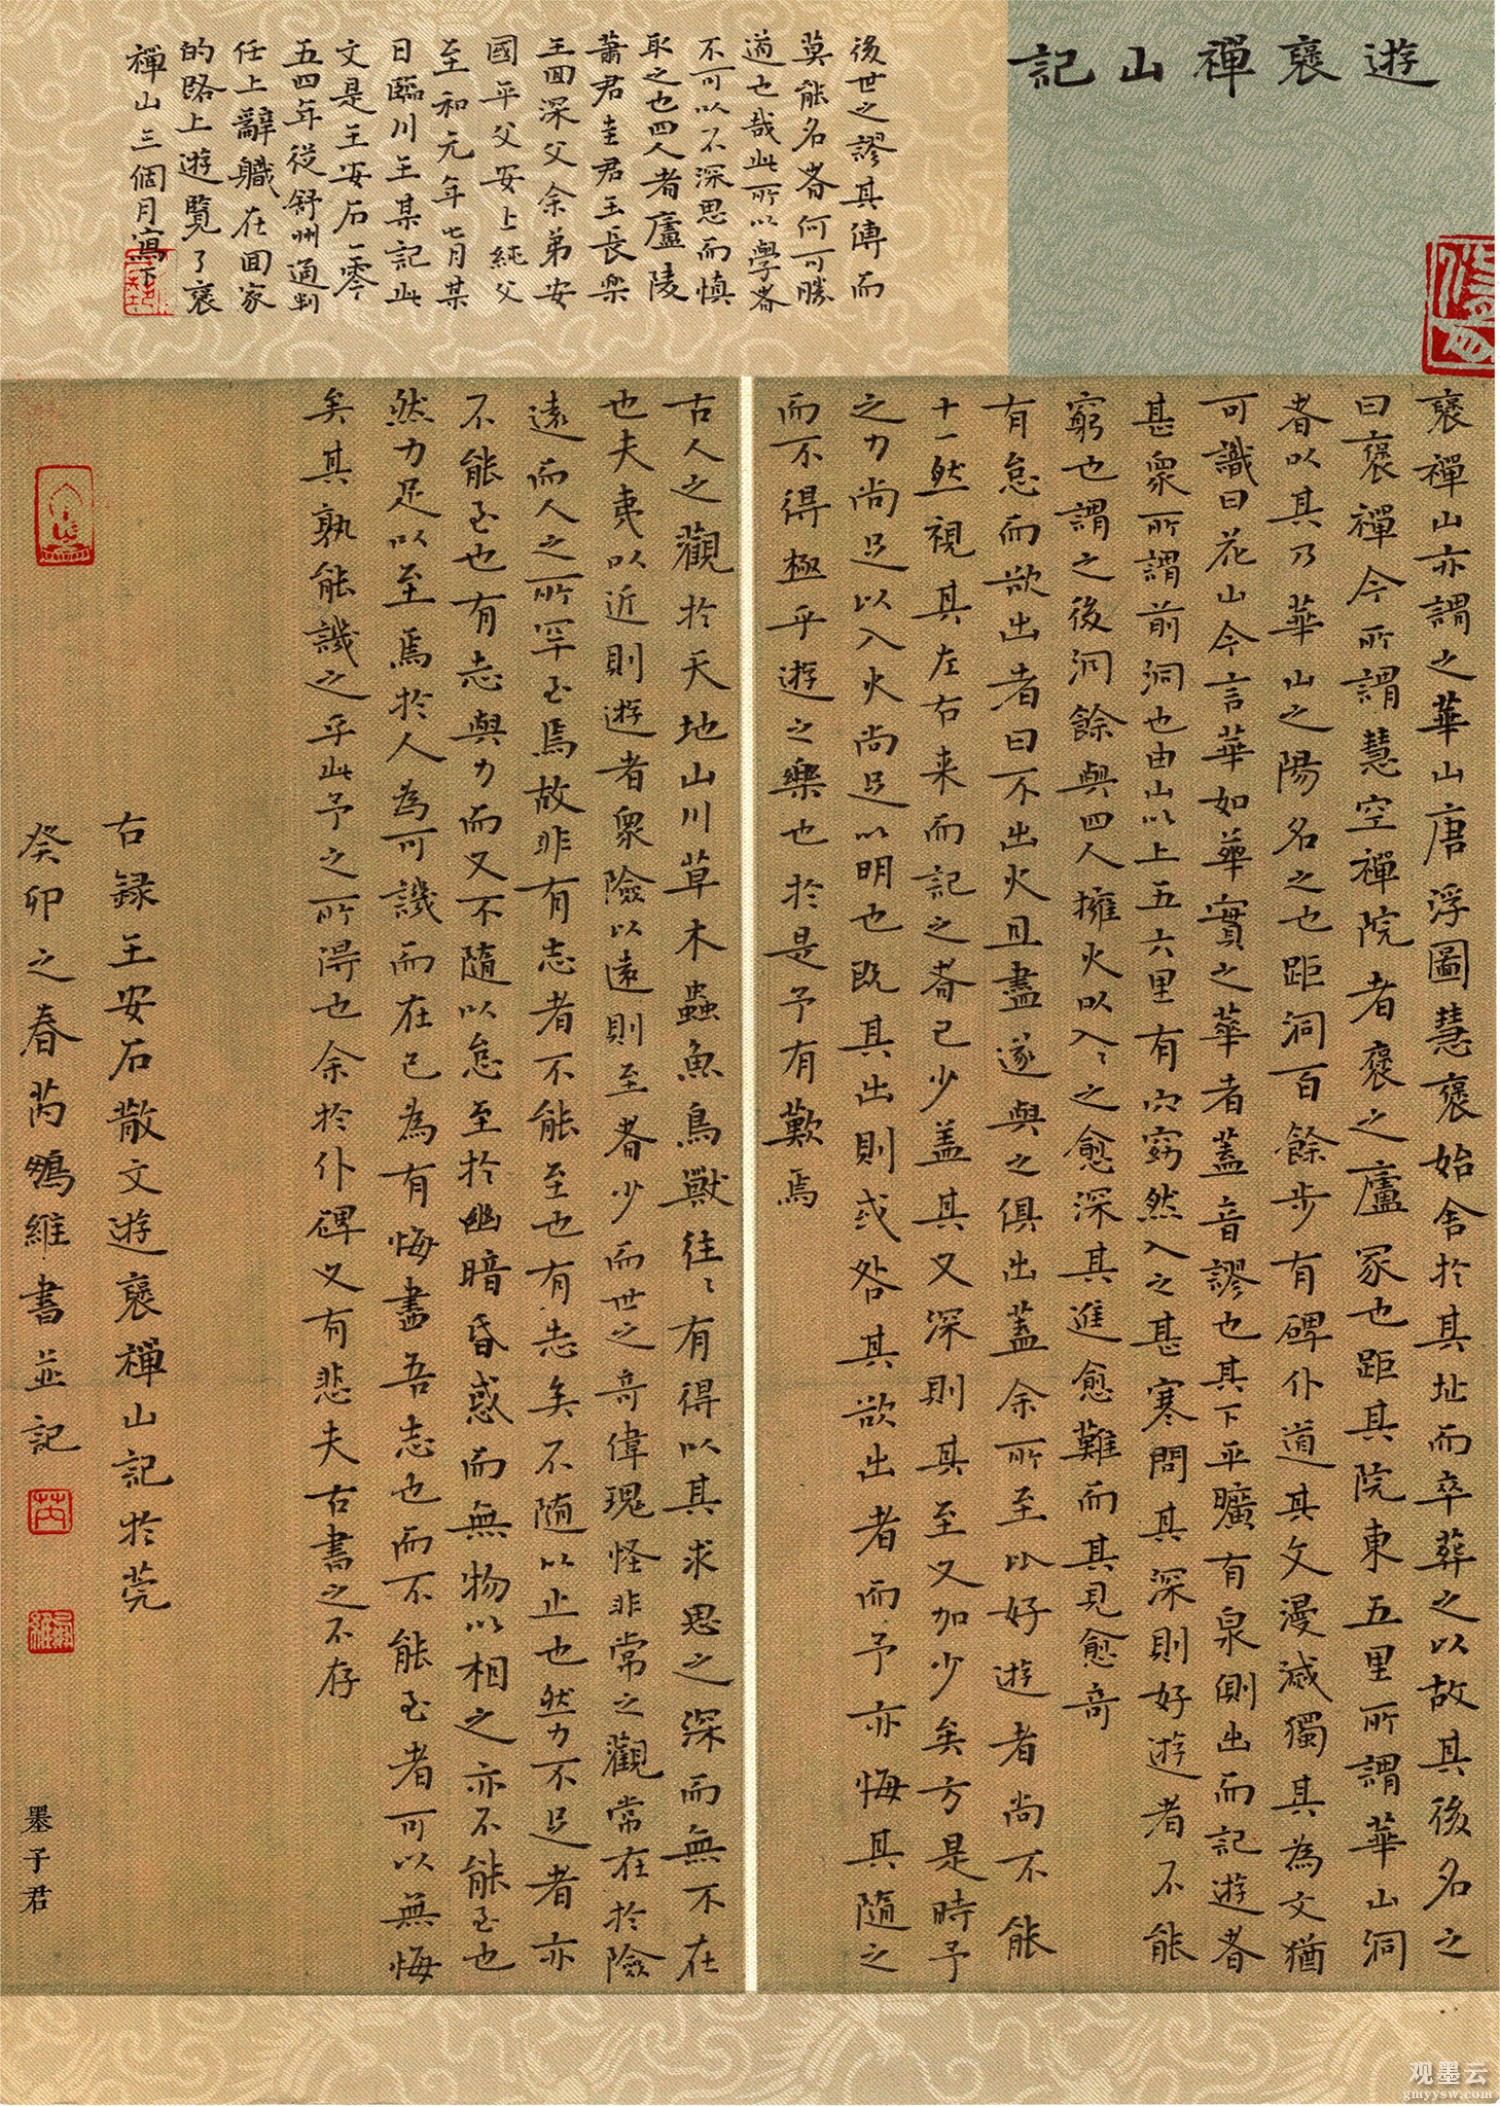 遊褒禪山記
褒禪山亦謂之華山唐浮圖慧褒始舍於其址而卒葬之以故其後名之
曰褒禪今所謂慧空禪院者褒之廬冢也距其院東五里所謂華山洞
者以其乃華山之陽名之也距洞百餘步有碑仆道其文漫滅獨其為文猶
可識曰花山今言華如華實之華者蓋音謬也其下平曠有泉側出而記遊者
甚眾所謂前洞也由山以上五六里有穴窈然入之甚寒問其深則好遊者不能
窮也謂之後洞餘與四人擁火以入〻之愈深其進愈難而其見愈奇
有怠而欲出者曰不出火且盡遂與之俱出蓋余所至比好遊者尚不能
十一然視其左右来而記之者已少盖其又深則其至又加少矣方是時予
之力尚足以入火尚足以明也既其出則或咎其欲出者而予亦悔其隨之
而不得極乎遊之樂也於是予有歎焉
古人之觀於天地山川草木蟲魚鳥獸往〻有得以其求思之深而無不在
也夫夷以近則遊者眾險以遠則至者少而世之奇偉瑰怪非常之觀常在於險
遠而人之所罕至焉故非有志者不能至也有志矣不隨以止也然力不足者亦
不能至也有志與力而又不隨以怠至於幽暗昏惑而無物以相之亦不能至也
然力足以至焉於人為可譏而在己為有悔盡吾志也而不能至者可以無悔
矣其孰能譏之乎此予之所得也余於仆碑又有悲夫古書之不存
後世之謬其傳而
莫能名者何可勝
道也哉此所以學者
不可以不深思而慎
取之也四人者廬陵
蕭君圭君玉長樂
王回深父余弟安
國平父安上純父
至和元年七月某
日臨川王某記此
文是王安石一零
五四年從舒州通判
任上辭職在回家
的路上遊覽了褒
禪山三個月寫下
右録王安石散文遊褒禪山記於莞
癸卯之春芮鴨維書並記
墨子君
观墨云
gmyysw.com